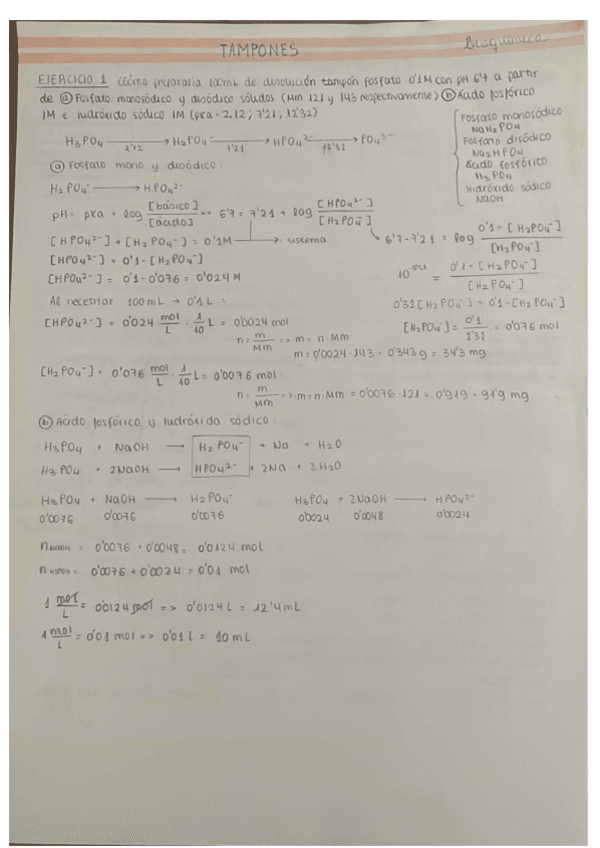 TAMPONES
Bioquímica
EJERCICIO 1 Cómo prepararía 100mL de disolución tampón fosfato 0'1M con pH 6'7 a partir
de ⓐ Fosfato monosódico y disódico sólidos (Mm 121 y 143 respectivamente) ⓑ Ácido fosfórico
1M e hidróxido sódico 1M (pka = 2,12; 7'21, 12'32)
Fosfato monosódico
NaH2PO4
Fosfato disódico
Na2HPO4
Ácido fosfórico
H3PO4
Hidróxido sódico
NaOH
H3PO4 → 2'12 H2PO4⁻ → 7'21 HPO4²⁻ → 12'32 PO4³⁻
ⓐ Fosfato mono y disódico:
H2PO4⁻ → HPO4²⁻
pH = pka + log [básico]/[ácido] => 6'7 = 7'21 + log [HPO4²⁻]/[H2PO4⁻]
[HPO4²⁻] + [H2PO4⁻] = 0'1M → sistema
6'7-7'21 = log 0'1-[H2PO4⁻]/[H2PO4⁻]
[HPO4²⁻] = 0'1 - [H2PO4⁻]
[HPO4²⁻] = 0'1 - 0'076 = 0'024 M
= 0'1-[H2PO4⁻]/[H2PO4⁻]
Al necesitar 100 mL → 0'1 L:
0'31 [H2PO4⁻] = 0'1-[H2PO4⁻]
[HPO4²⁻] = 0'024 mol/L · 1/10 L = 0'0024 mol
[H2PO4⁻] = 0'1/1'31 = 0'076 mol
n = m/Mm => m = n · Mm
m = 0'0024 · 143 = 0'343 g = 34'3 mg
[H2PO4⁻] = 0'076 mol/L · 1/10 L = 0'0076 mol
n = m/Mm => m = n · Mm = 0'0076 · 121 = 0'919 = 91'9 mg
ⓑ Ácido fosfórico y hidróxido sódico:
H3PO4 + NaOH → H2PO4⁻ + Na + H2O
H3PO4 + 2NaOH → HPO4²⁻ + 2Na + 2H2O
H3PO4 + NaOH → H2PO4⁻ H3PO4 + 2NaOH → HPO4²⁻
0'0076 0'0076 0'0076 0'0024 0'0048 0'0024
n NaOH = 0'0076 + 0'0048 = 0'0124 mol
n H3PO4 = 0'0076 + 0'0024 = 0'01 mol
1 mol/L = 0'0124 mol => 0'0124 L = 12'4 mL
1 mol/L = 0'01 mol => 0'01 L = 10 mL